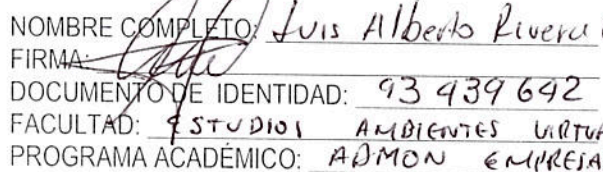 NOMBRE COMPLETO: Luis Alberto Rivera
FIRMA:
DOCUMENTO DE IDENTIDAD: 93 439 642
FACULTAD: ESTUDIOS AMBIENTES VIRTUA
PROGRAMA ACADÉMICO: ADMON EMPRESA